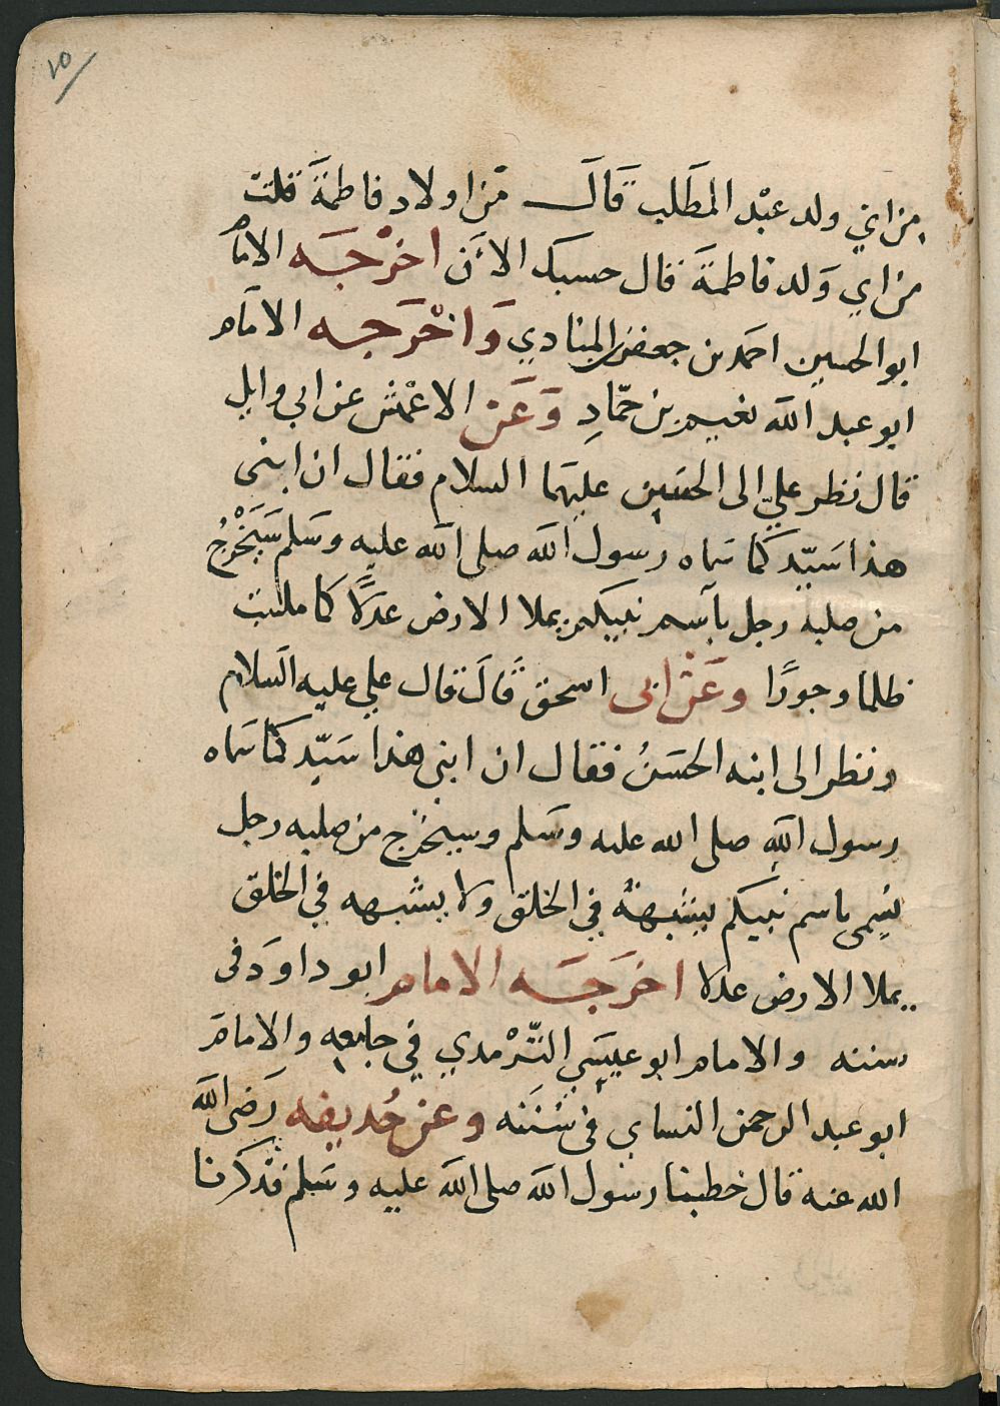 ٢٥
من اي ولد عبْد المطَلب قَالَ مْن اولاد فاطمَةَ قلت
من اي وَلد فاطمةَ قال حسبك الأن اخرْجَه الامام
ابو الحسين احمد بن جعفر المنادي وَاخْرَجه الامَام
ابو عبد الله نعيم بن حمّادِ وَعَن الاعْمش عن ابي وايل
قال نظر عليّ الى الحسين عليهَما السلام فقال ان ابني
هذا سَيّد كما سَماه رسول الله صلى الله عليه وسَلم سَيَخْرجُ
من صلبه رجل باسم نبيكم يملا الارض عدلًا كما ملئت
ظلما وجورًا وعَنْ ابى اسحق قَالَ قال علي عليه السَلام
ونظر الى ابنه الحسَنُ فقال ان ابنى هذا سَيّد كما سَماه
رسول الله صلى الله عليه وسَلم وسيخرج من صلبه رجل
يُسمى باسم نبيكم يشبههُ في الخلق ولا يشبهه في الخلق
يملا الارض عدلا اخرَجَه الامام ابو داوَد فى
سننه والامام ابو عيسَي التّرْمدي في جامعه والامامَ
ابو عبد الرحمن النساي فى سُنَنه وعن حُديفه رَضى الله
الله عنه قال خطبنا رسول الله صلى الله عليه وسَلم فذكرنا